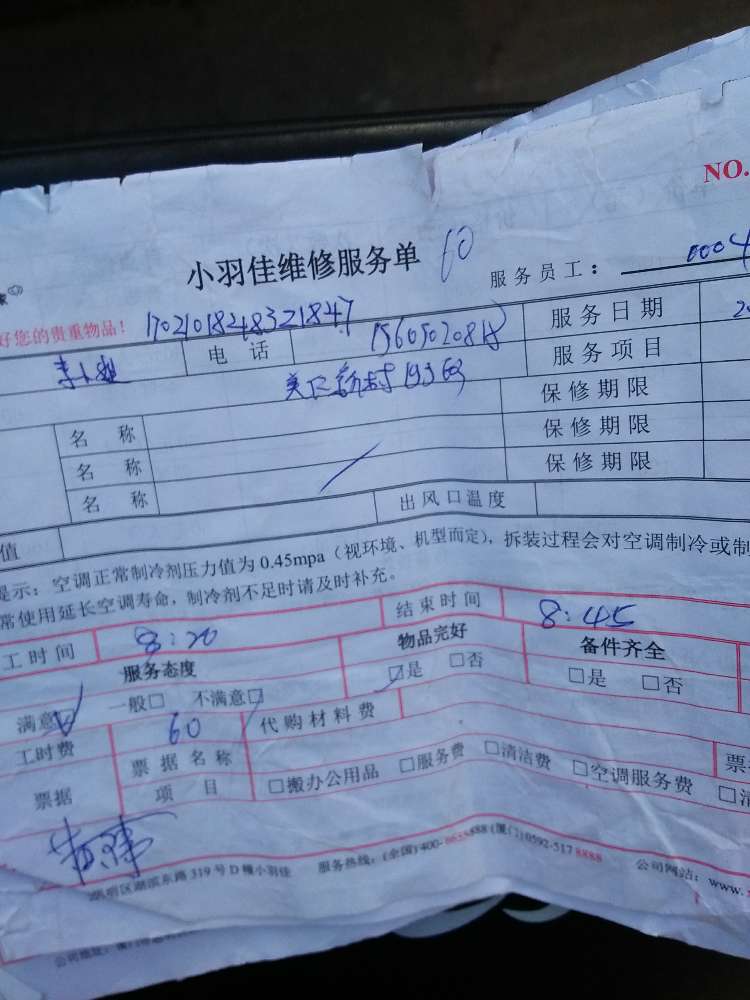 NO.
小羽佳维修服务单 60
服务员工： 0004
好您的贵重物品！ 17021018248321847
电 话 服务日期
服务项目
美仁新村 保修期限
名 称 保修期限
名 称 保修期限
名 称 出风口温度
值
提示：空调正常制冷剂压力值为 0.45mpa（视环境、机型而定），拆装过程会对空调制冷或制
常使用延长空调寿命，制冷剂不足时请及时补充。
工时间 8:20 结束时间 8:45
服务态度 物品完好 备件齐全
满意☑ 一般□ 不满意□ ☑是 □否 □是 □否
工时费 60 代购材料费
票据 票据名称 票
项 目 □搬办公用品 □服务费 □清洁费 □空调服务费 □清
湖滨东路 319 号 D 幢小羽佳 服务热线：(全国)400- 888 (厦门)0592-5178888 公司网站：www.
公司地址：厦门市